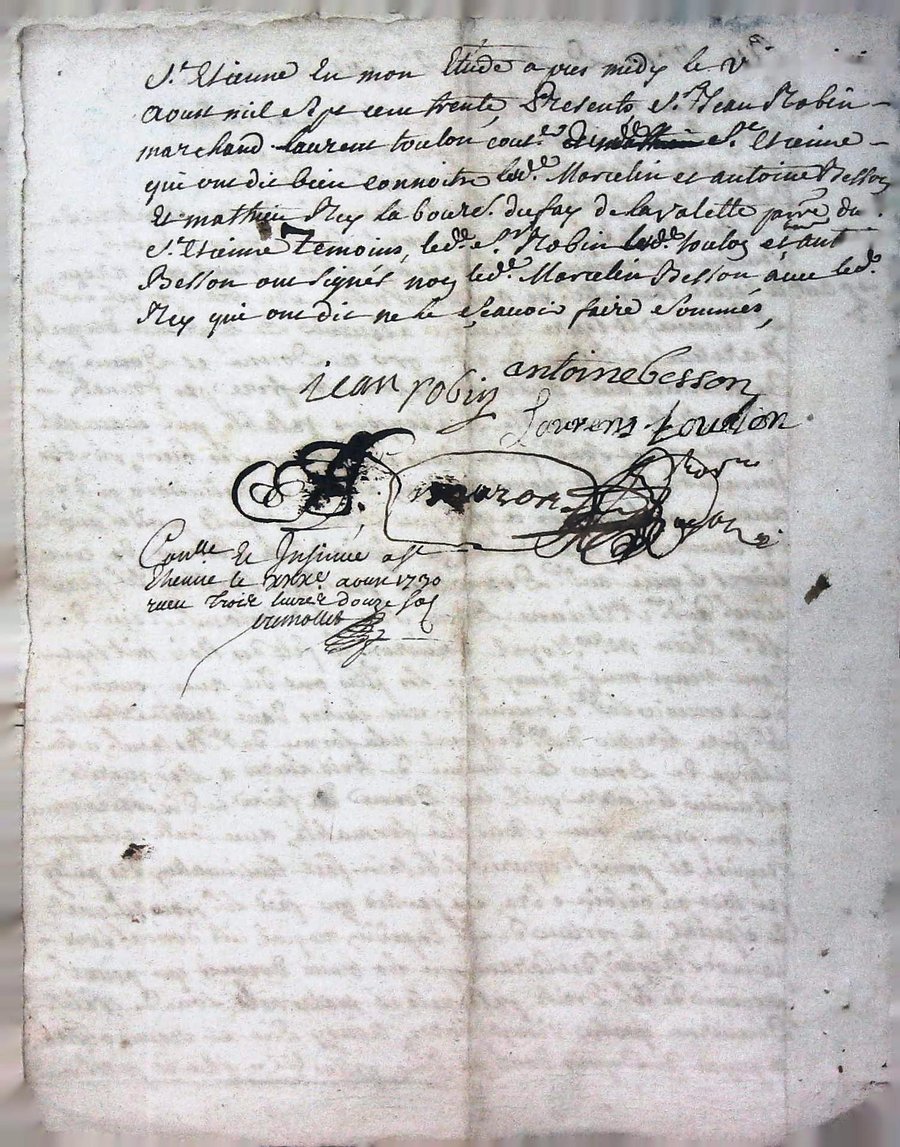 St. Etienne En mon Etude apres midy le V
aoust mil sept cent trente, Presents Sr. Jean Robin
marchand laurent toulon cout. St. etienne
qui ont dit bien connoitre lesd. Marcelin et antoine Besson
Et mathieu Rey labour. du fay de la valette parr. du
St. Etienne Temoins, led. Sr. Robin led. toulon et ant
Besson ont signés non led. Marcelin Besson avec led.
Rey qui ont dit ne le sçavoir faire Sommés,
jean robin antoine besson
Lourens toulon
maron
Conlle. & Insinué a St
Etienne le aoust 1730
receu Trois livres douze sols